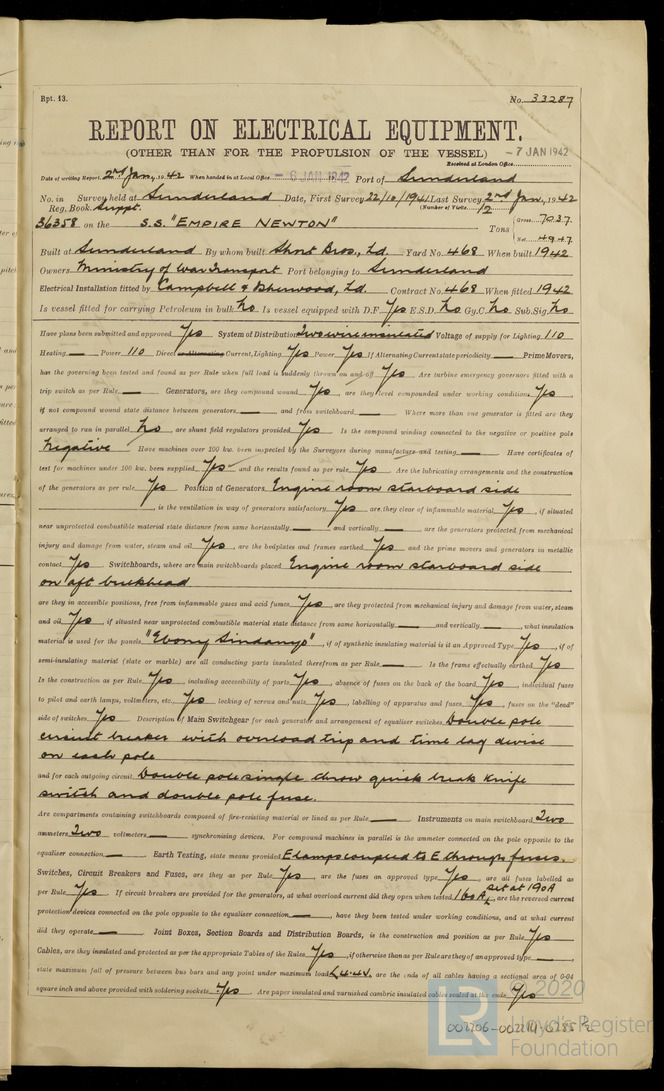 Rpt. 13.
No. 33287
REPORT ON ELECTRICAL EQUIPMENT.
(OTHER THAN FOR THE PROPULSION OF THE VESSEL)
- 7 JAN 1942
Received at London Office
Date of writing Report 2nd Jan, 1942 When handed in at Local Office - 6 JAN 1942 Port of Sunderland
No. in Survey held at Sunderland Date, First Survey 22/10/1941 Last Survey 2nd Jan, 1942
Reg. Book. Suppt. (Number of Visits 12
36358 on the S.S. "EMPIRE NEWTON" Tons Gross 7037 Net 4947
Built at Sunderland By whom built Short Bros., Ld. Yard No. 468 When built 1942
Owners Ministry of War Transport Port belonging to Sunderland
Electrical Installation fitted by Campbell & Isherwood, Ld. Contract No. 468 When fitted 1942
Is vessel fitted for carrying Petroleum in bulk No Is vessel equipped with D.F. Yes E.S.D. No Gy.C. No Sub.Sig. No
Have plans been submitted and approved Yes System of Distribution Two wire insulated Voltage of supply for Lighting 110
Heating — Power 110 Direct or Alternating Current, Lighting Yes Power Yes If Alternating Current state periodicity — Prime Movers,
has the governing been tested and found as per Rule when full load is suddenly thrown on and off Yes Are turbine emergency governors fitted with a
trip switch as per Rule — Generators, are they compound wound Yes, are they level compounded under working conditions Yes,
if not compound wound state distance between generators — and from switchboard — Where more than one generator is fitted are they
arranged to run in parallel No, are shunt field regulators provided Yes Is the compound winding connected to the negative or positive pole
Negative Have machines over 100 kw. been inspected by the Surveyors during manufacture and testing — Have certificates of
test for machines under 100 kw. been supplied Yes and the results found as per rule Yes Are the lubricating arrangements and the construction
of the generators as per rule Yes Position of Generators Engine room starboard side
, is the ventilation in way of generators satisfactory Yes are they clear of inflammable material Yes, if situated
near unprotected combustible material state distance from same horizontally — and vertically — are the generators protected from mechanical
injury and damage from water, steam and oil Yes, are the bedplates and frames earthed Yes and the prime movers and generators in metallic
contact Yes Switchboards, where are main switchboards placed Engine room starboard side
on aft bulkhead
are they in accessible positions, free from inflammable gases and acid fumes Yes, are they protected from mechanical injury and damage from water, steam
and oil Yes, if situated near unprotected combustible material state distance from same horizontally — and vertically —, what insulation
material is used for the panels "Ebony Sindanyo", if of synthetic insulating material is it an Approved Type Yes, if of
semi-insulating material (slate or marble) are all conducting parts insulated therefrom as per Rule — Is the frame effectually earthed Yes
Is the construction as per Rule Yes, including accessibility of parts Yes, absence of fuses on the back of the board Yes, individual fuses
to pilot and earth lamps, voltmeters, etc. Yes locking of screws and nuts Yes, labelling of apparatus and fuses Yes, fuses on the "dead"
side of switches Yes Description of Main Switchgear for each generator and arrangement of equaliser switches Double pole
circuit breaker with overload trip and time lag devise
on each pole
and for each outgoing circuit Double pole single throw quick break knife
switch and double pole fuse.
Are compartments containing switchboards composed of fire-resisting material or lined as per Rule — Instruments on main switchboard Two
ammeters Two voltmeters — synchronising devices. For compound machines in parallel is the ammeter connected on the pole opposite to the
equaliser connection — Earth Testing, state means provided E lamps coupled to E through fuses.
Switches, Circuit Breakers and Fuses, are they as per Rule Yes, are the fuses an approved type Yes, are all fuses labelled as
per Rule Yes If circuit breakers are provided for the generators, at what overload current did they open when tested 160A set at 190A, are the reversed current
protection devices connected on the pole opposite to the equaliser connection —, have they been tested under working conditions, and at what current
did they operate — Joint Boxes, Section Boards and Distribution Boards, is the construction and position as per Rule Yes
Cables, are they insulated and protected as per the appropriate Tables of the Rules Yes, if otherwise than as per Rule are they of an approved type —,
state maximum fall of pressure between bus bars and any point under maximum load 4.4V, are the ends of all cables having a sectional area of 0·04
square inch and above provided with soldering sockets Yes Are paper insulated and varnished cambric insulated cables sealed at the ends Yes
© 2020
LR
Lloyd's Register
Foundation